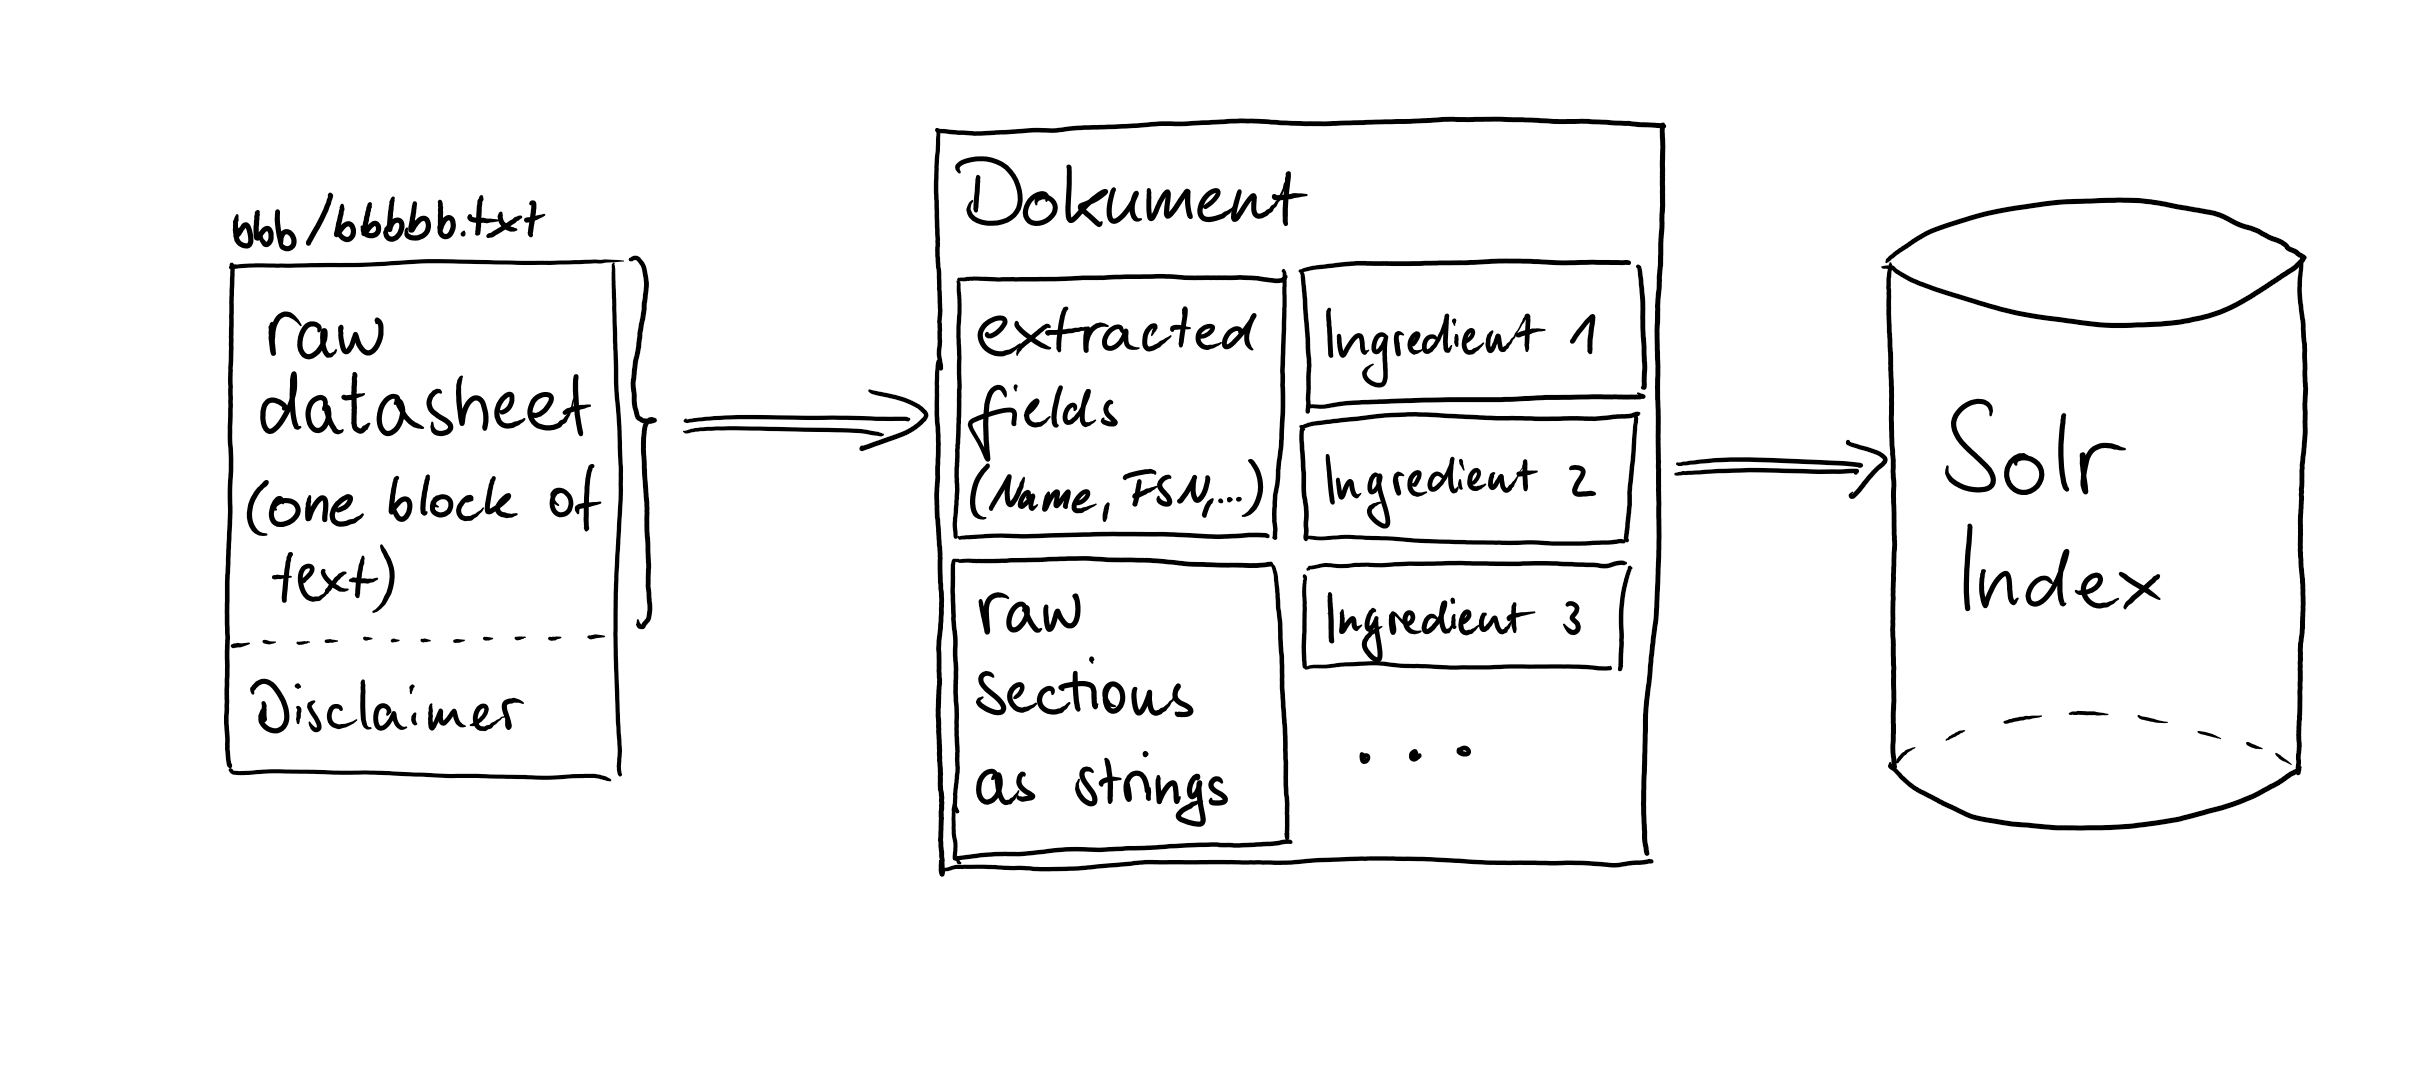 bbb/bbbbb.txt
raw
datasheet
(one block of
text)
Disclaimer
Dokument
extracted
fields
(Name, FSN,...)
raw
sections
as strings
Ingredient 1
Ingredient 2
Ingredient 3
...
Solr
Index